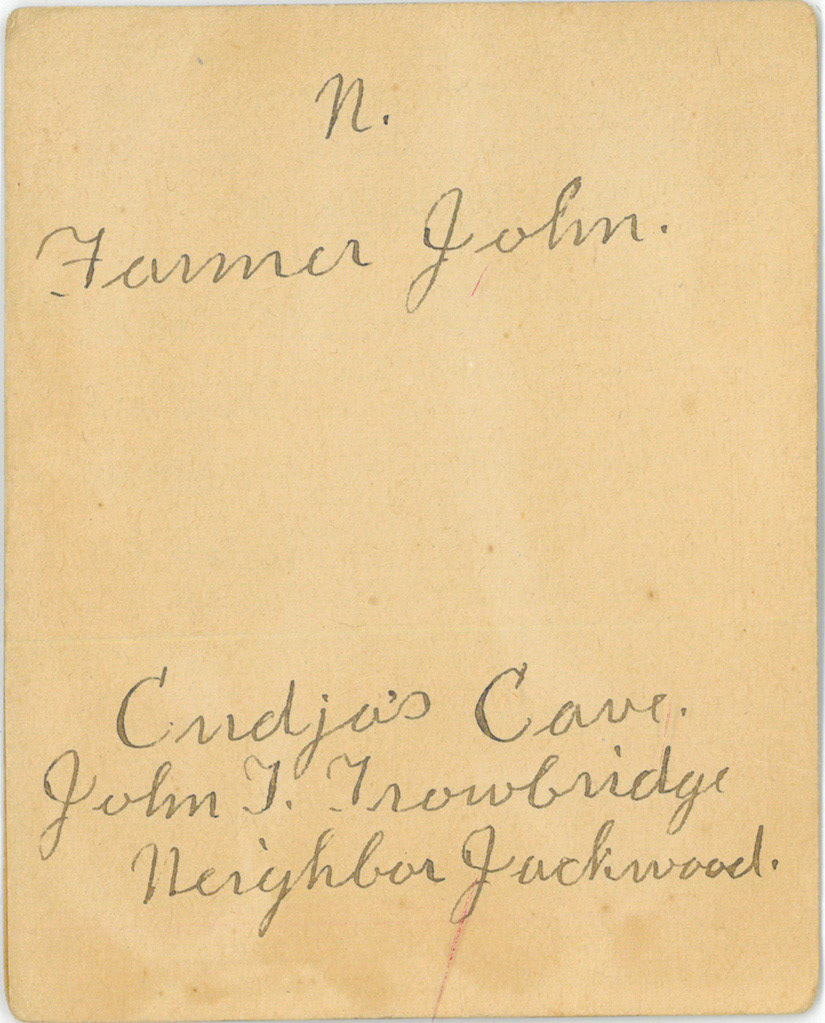 N.
Farmer John.
Cudjo's Cave.
John T. Trowbridge
Neighbor Jackwood.